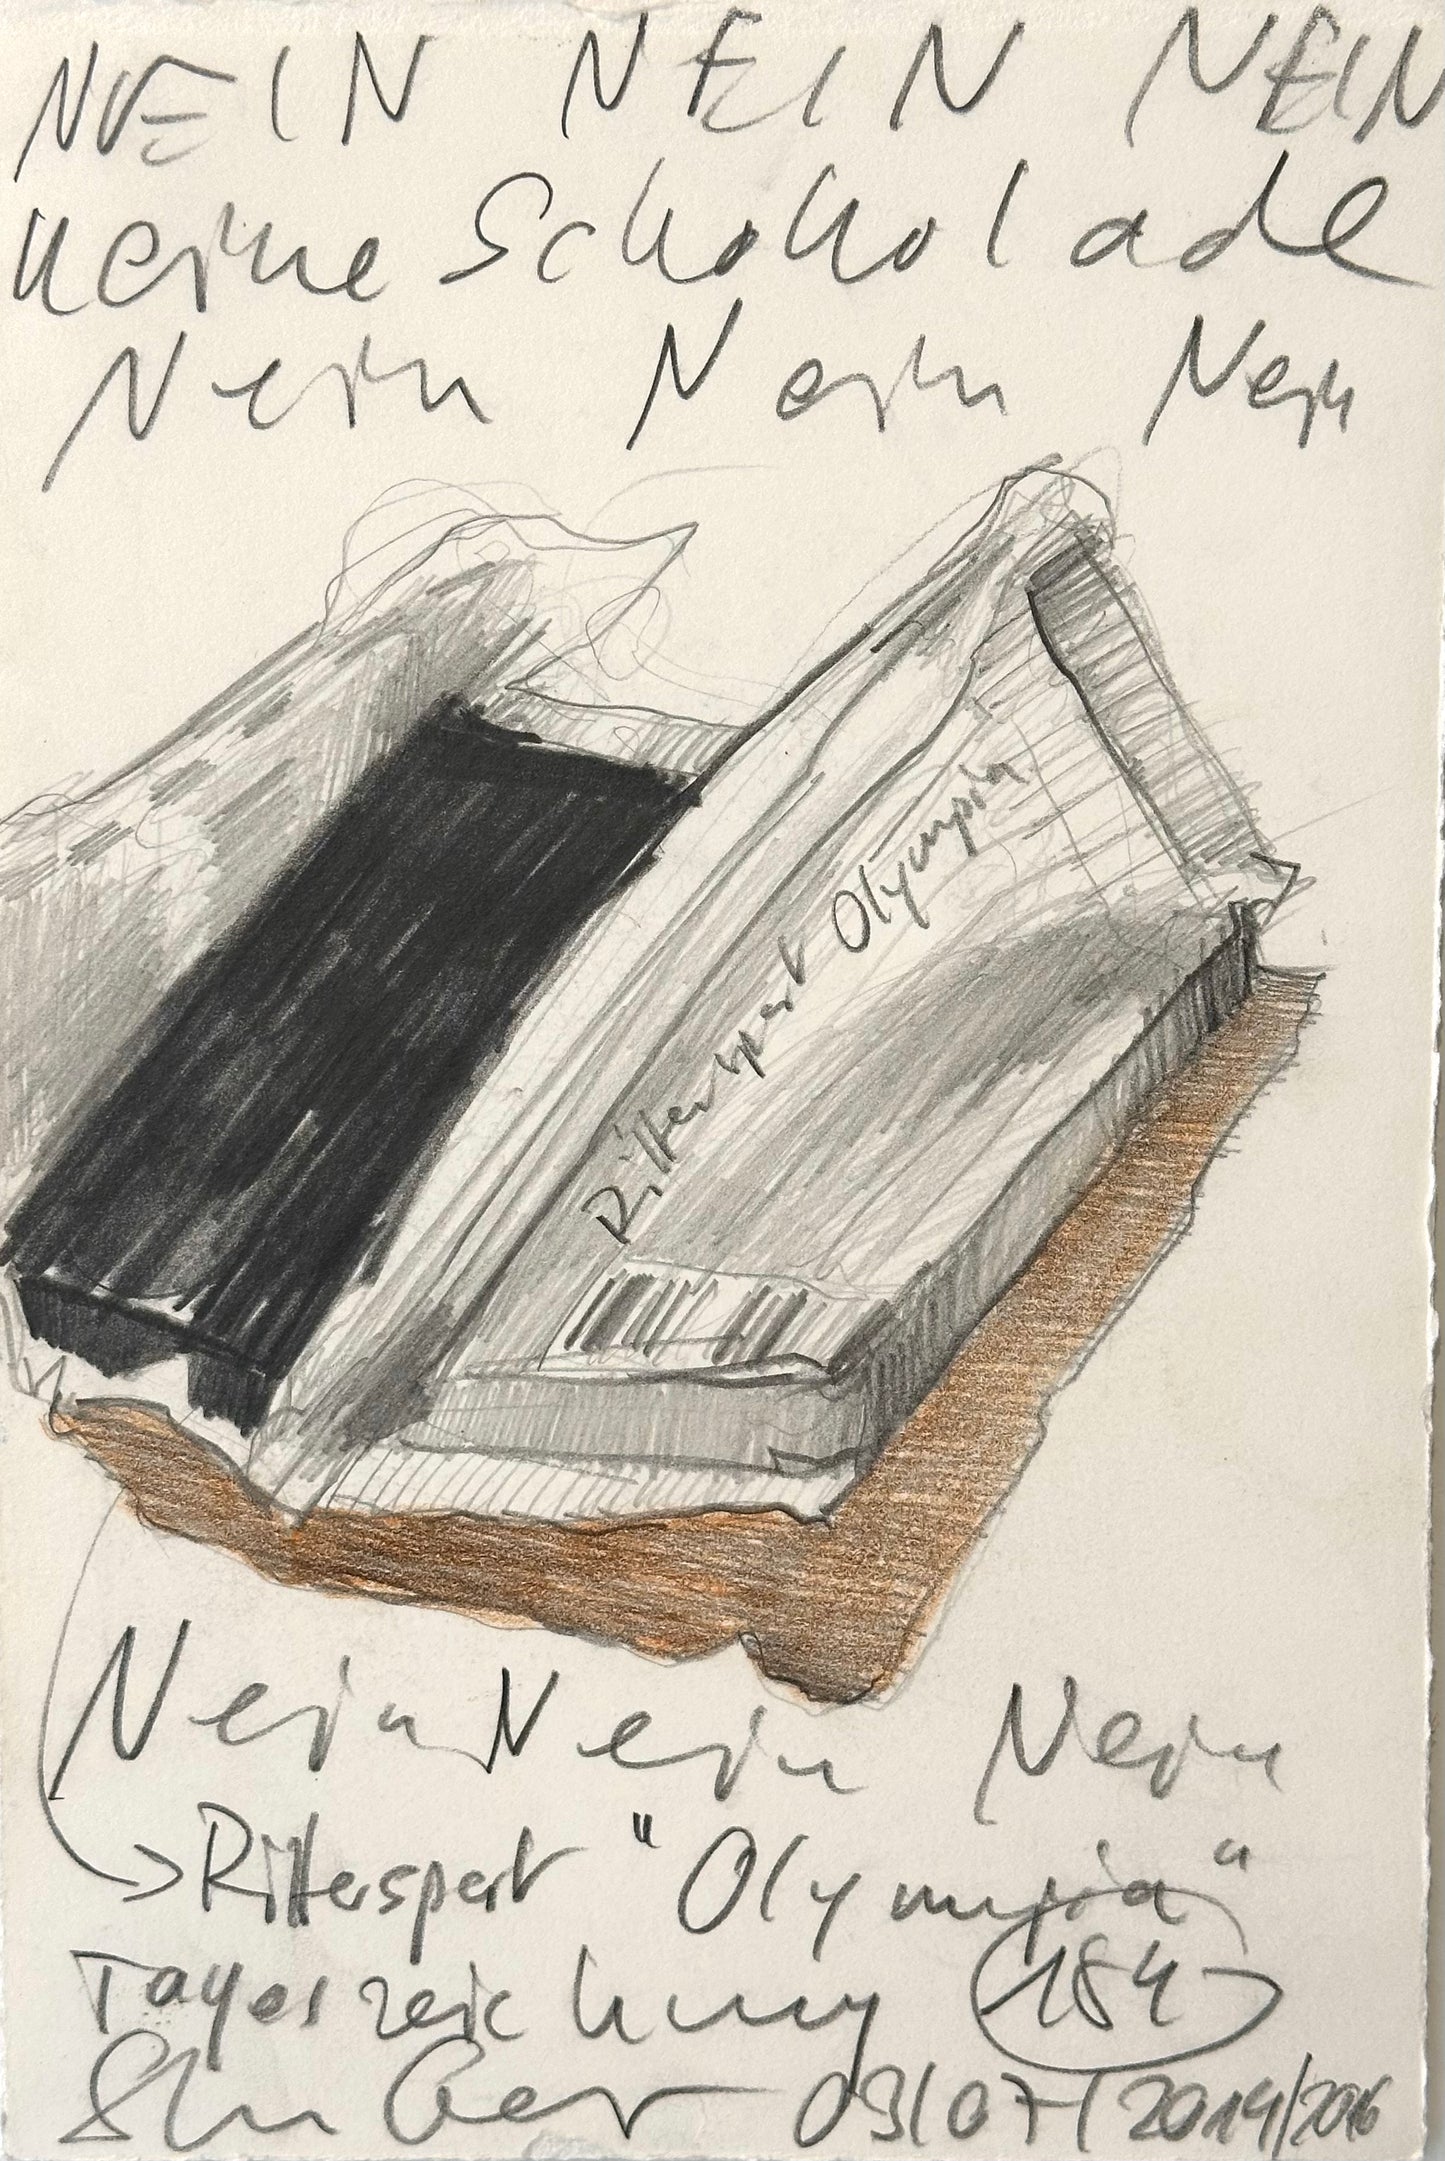 NEIN NEIN NEIN
keine Schokolade
Nein Nein Nein
Rittersport Olympia
Nein Nein Nein
Rittersport "Olympia"
Tageszeichnung 184
03/07/2014/2016